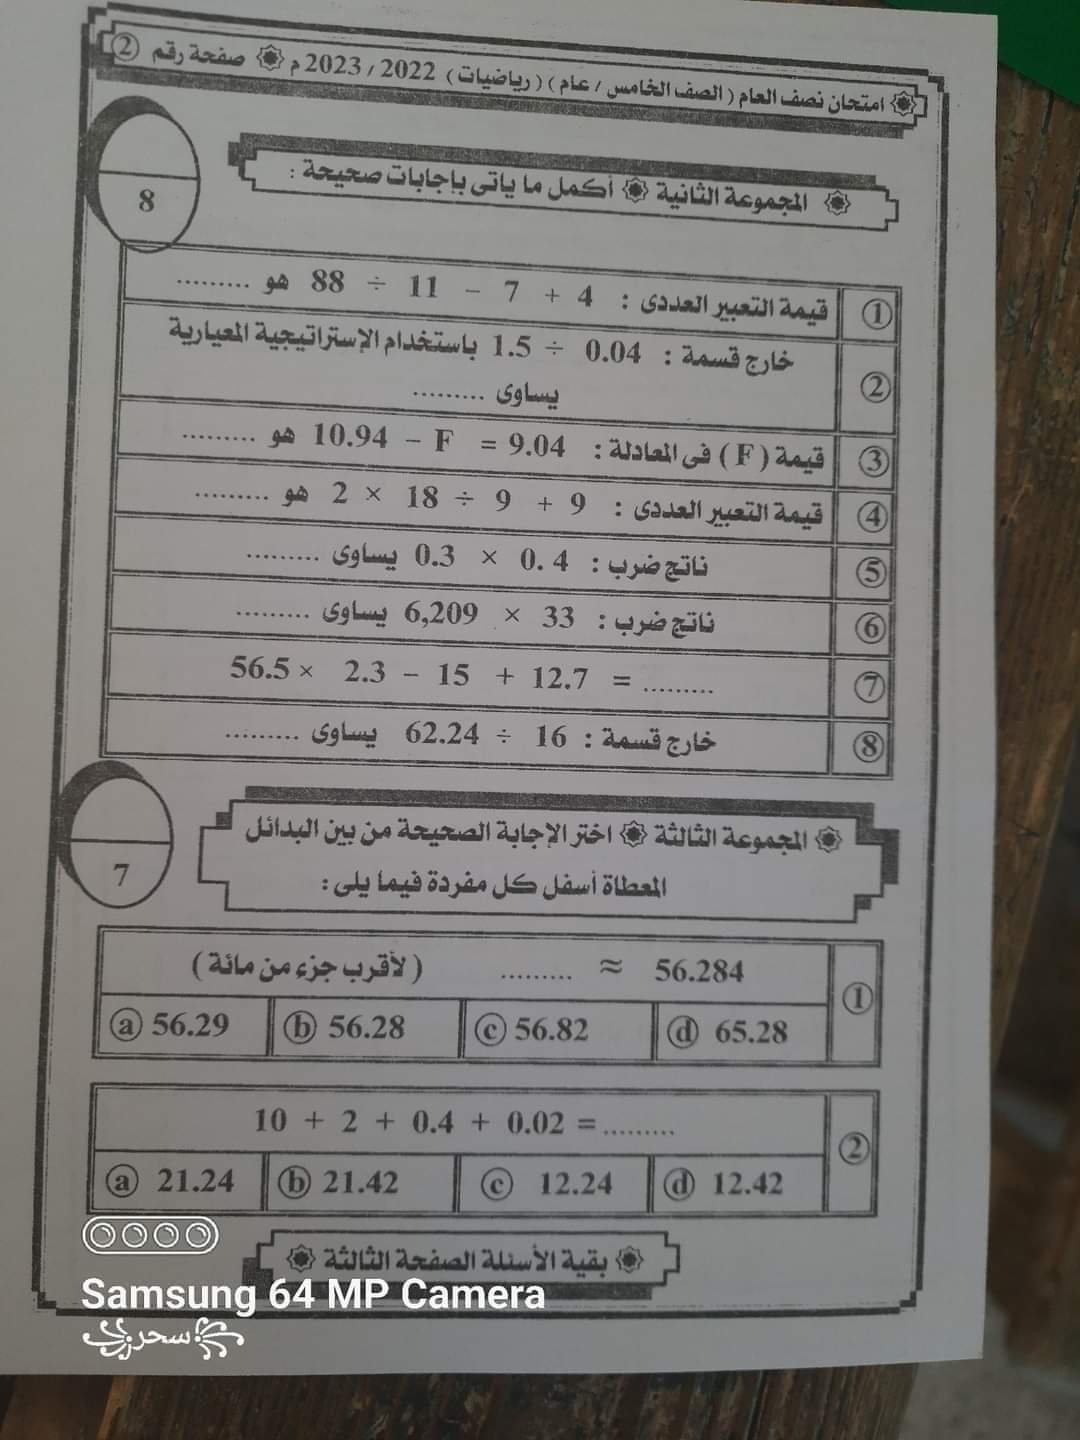 امتحان نصف العام ( الصف الخامس / عام ) ( رياضيات ) 2022 / 2023 م صفحة رقم ②
8
المجموعة الثانية أكمل ما يأتى بإجابات صحيحة :
① قيمة التعبير العددى : 88 ÷ 11 - 7 + 4 هو .........
② خارج قسمة : 1.5 ÷ 0.04 باستخدام الإستراتيجية المعيارية
يساوى .........
③ قيمة ( F ) فى المعادلة : 10.94 - F = 9.04 هو .........
④ قيمة التعبير العددى : 2 × 18 ÷ 9 + 9 هو .........
⑤ ناتج ضرب : 0.3 × 0.4 يساوى .........
⑥ ناتج ضرب : 6,209 × 33 يساوى .........
⑦ 56.5 × 2.3 - 15 + 12.7 = .........
⑧ خارج قسمة : 62.24 ÷ 16 يساوى .........
7
المجموعة الثالثة اختر الإجابة الصحيحة من بين البدائل
المعطاة أسفل كل مفردة فيما يلى :
① 56.284 ≈ ......... ( لأقرب جزء من مائة )
ⓐ 56.29 ⓑ 56.28 ⓒ 56.82 ⓓ 65.28
② 10 + 2 + 0.4 + 0.02 = .........
ⓐ 21.24 ⓑ 21.42 ⓒ 12.24 ⓓ 12.42
بقية الأسئلة الصفحة الثالثة
Samsung 64 MP Camera
سحر